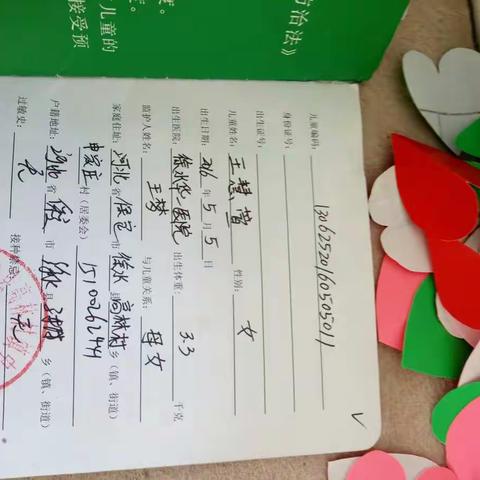 治法》
度。
儿童的
接受预
儿童编码：13062520160505011
身份证号：
出生证号：
儿童姓名：王慧萱 性别：女
出生日期：2016年5月5日
出生医院：徐水华一医院 出生体重：3.3千克
监护人姓名：王梦 与儿童关系：母女
家庭住址：河北省保定市徐水县高林村乡（镇、街道）
申家庄村（居委会）15100262441
户籍地址：河北省保定市徐水县高林村乡（镇、街道）
过敏史：无 接种禁忌：无